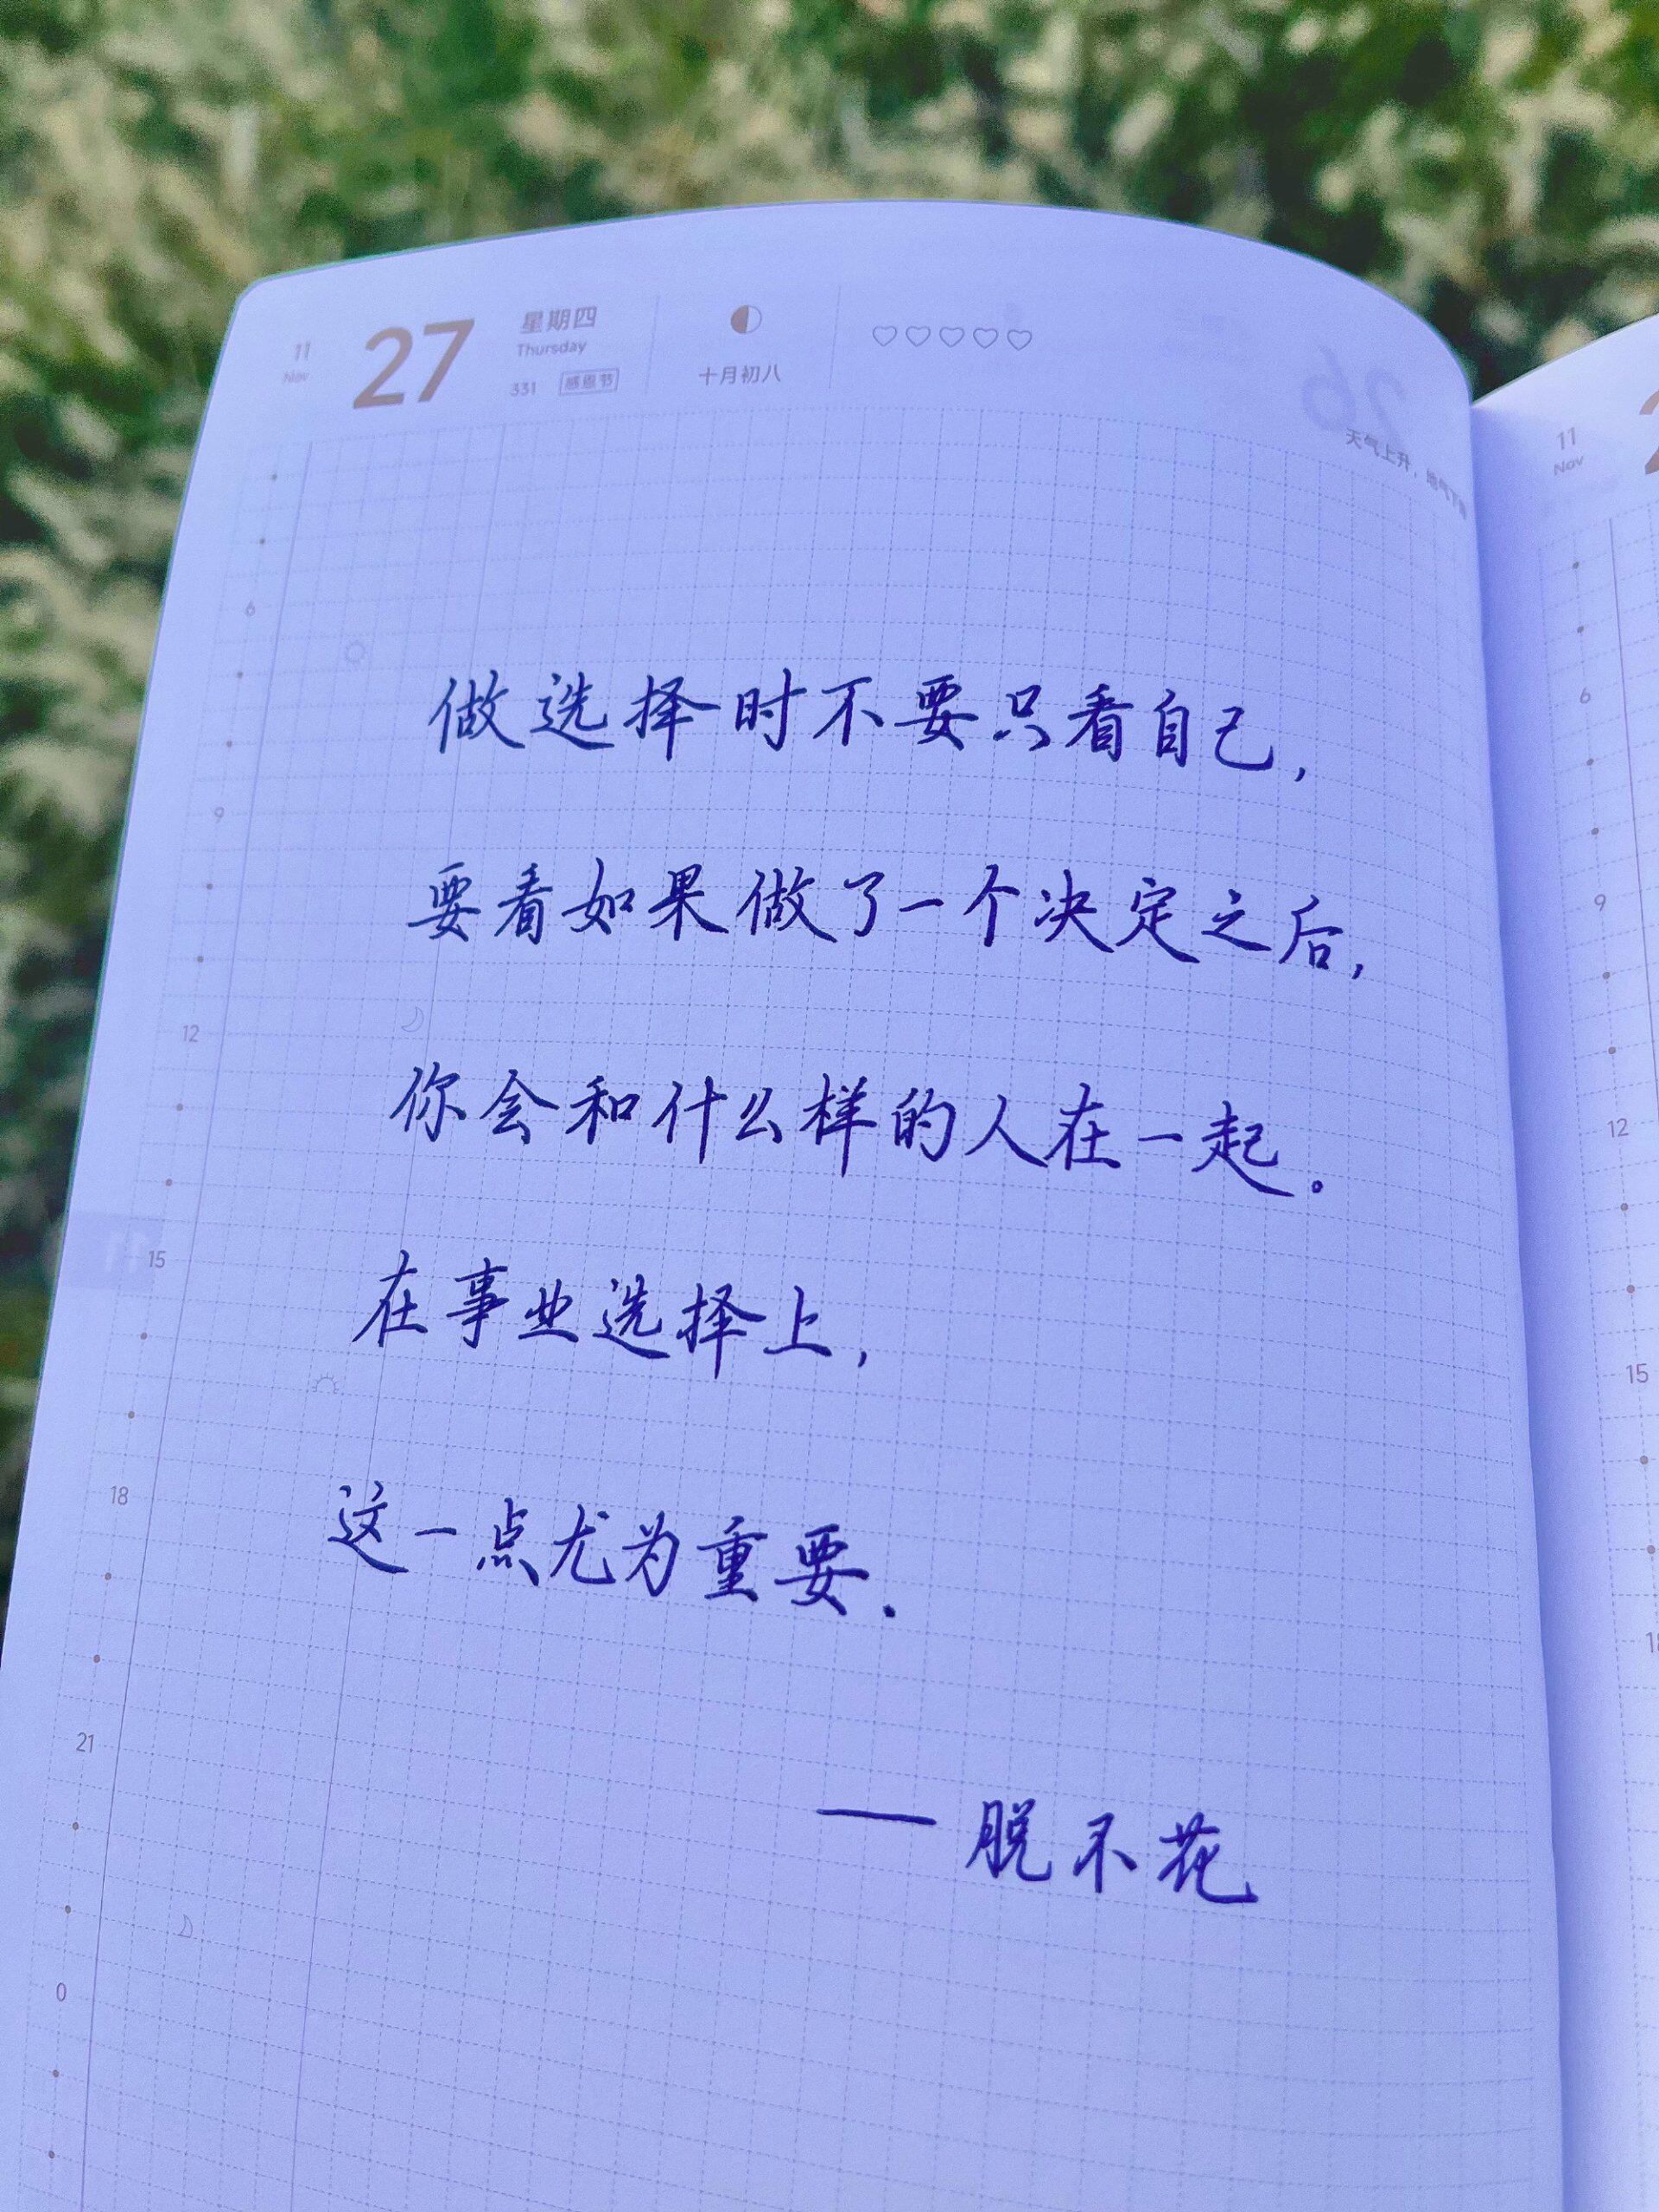 11
Nov
27
星期四
Thursday
331 感恩节
十月初八
天气上升
做选择时不要只看自己，
要看如果做了一个决定之后，
你会和什么样的人在一起。
在事业选择上，
这一点尤为重要.
——脱不花
6
9
12
15
18
21
0
11
Nov
6
9
12
15